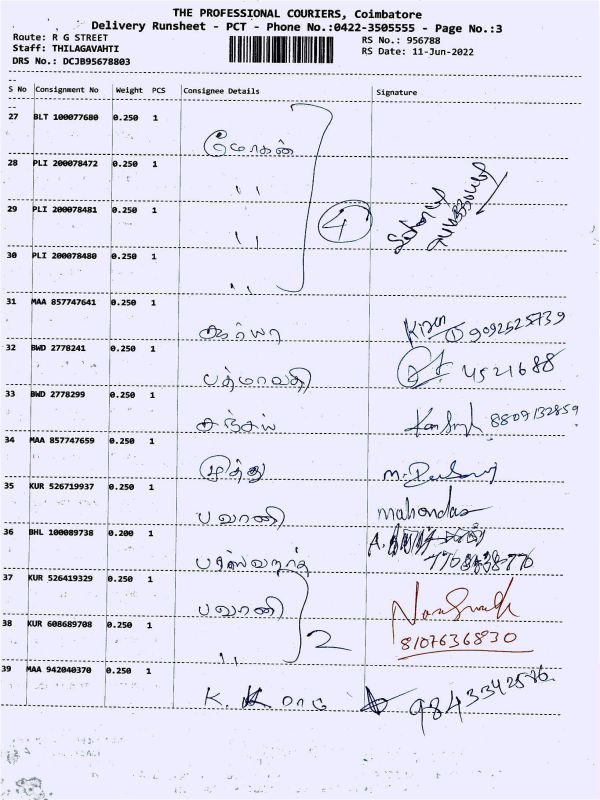 THE PROFESSIONAL COURIERS, Coimbatore
Delivery Runsheet - PCT - Phone No.:0422-3505555 - Page No.:3
Route: R G STREET
RS No.: 956788
Staff: THILAGAVAHTI
RS Date: 11-Jun-2022
DRS No.: DCJB95678803
S No Consignment No Weight PCS Consignee Details Signature
27 BLT 100077680 0.250 1 மோகன்
28 PLI 200078472 0.250 1 ''
29 PLI 200078481 0.250 1 '' 4
30 PLI 200078480 0.250 1 ''
31 MAA 857747641 0.250 1 சூர்யா Kiran 9092525739
32 BWD 2778241 0.250 1 பத்மாவதி 4521688
33 BWD 2778299 0.250 1 சஞ்சய் 8809132859
34 MAA 857747659 0.250 1 முத்து
35 KUR 526719937 0.250 1 பவானி mahondas
36 BHL 100089738 0.200 1 A.
37 KUR 526419329 0.250 1 பவானி
38 KUR 608689708 0.250 1 '' 2 8107636830
39 MAA 942040370 0.250 1 K.